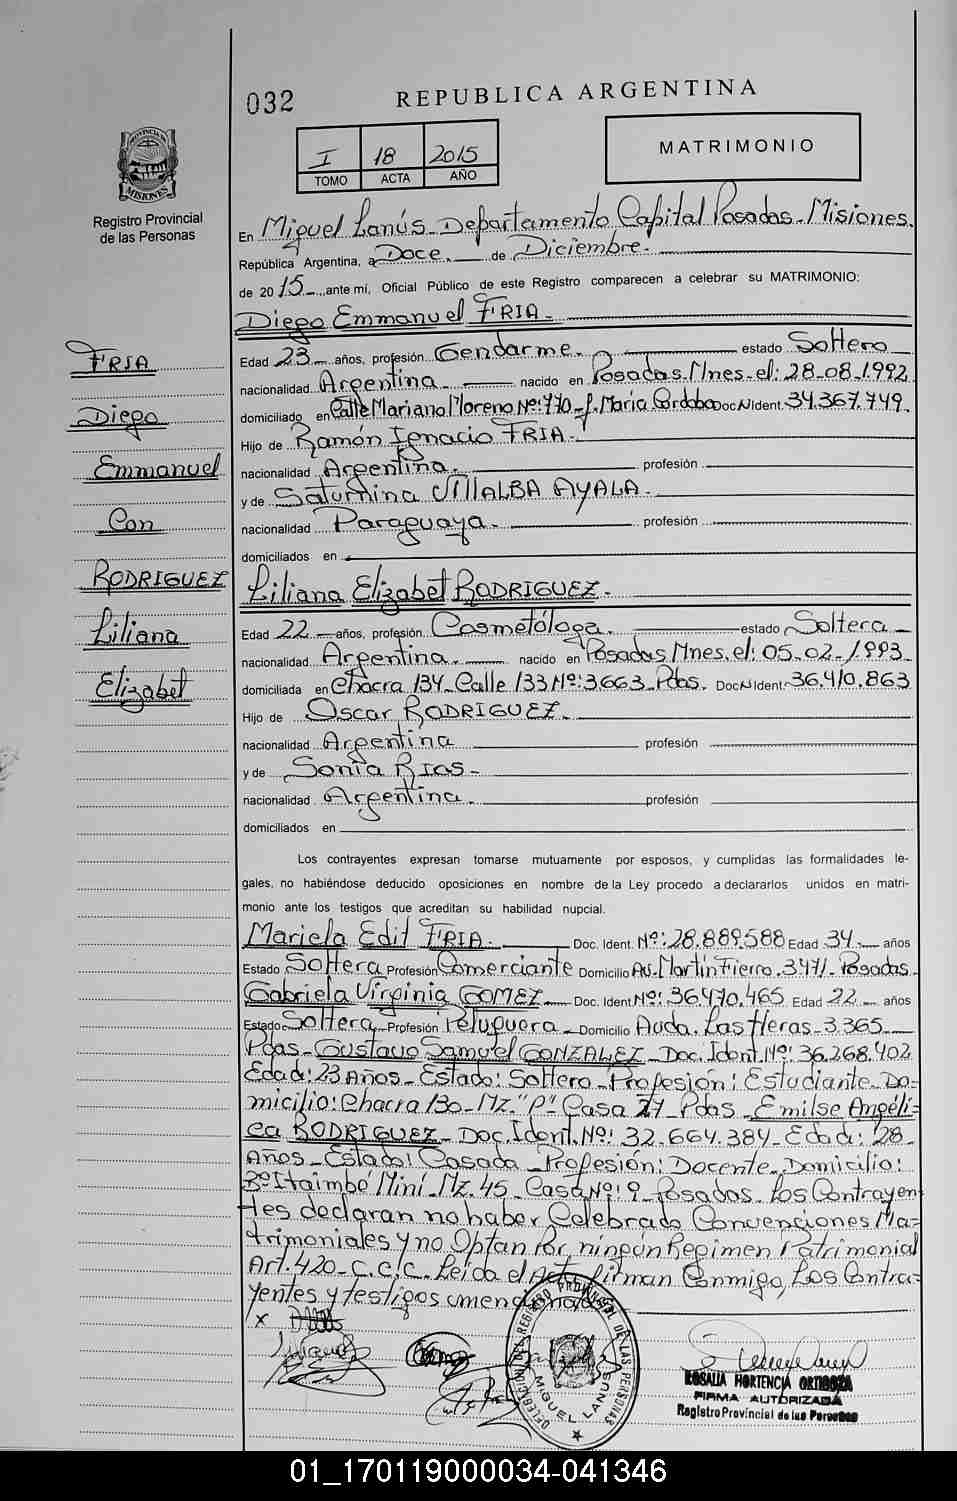 032
REPUBLICA ARGENTINA
I 18 2015
TOMO ACTA AÑO
MATRIMONIO
PROVINCIA DE
MISIONES
Registro Provincial
de las Personas
En Miguel Lanús - Departamento Capital Posadas - Misiones.
República Argentina, a Doce. de Diciembre.
de 2015 ante mí, Oficial Público de este Registro comparecen a celebrar su MATRIMONIO:
Diego Emmanuel FRIA.
FRIA
Diego
Emmanuel
Con
RODRIGUEZ
Liliana
Elizabet
Edad 23 años, profesión Gendarme. estado Soltero
nacionalidad Argentina nacido en Posadas. Mnes. el: 28-08-1.992
domiciliado en Calle Mariano Moreno Nº: 770 - f. María Cordoba Doc. Ident. 34.367.749.
Hijo de Ramón Ignacio FRIA.
nacionalidad Argentina. profesión
y de Saturnina VILLALBA AYALA.
nacionalidad Paraguaya. profesión
domiciliados en
Liliana Elizabet RODRIGUEZ.
Edad 22 años, profesión Cosmetóloga. estado Soltera
nacionalidad Argentina. nacido en Posadas Mnes. el: 05-02-1.993
domiciliada en Chacra 134 - Calle 133 Nº: 3663 - Pdas. Doc. Ident. 36.410.863
Hijo de Oscar RODRIGUEZ.
nacionalidad Argentina profesión
y de Sonia RIOS
nacionalidad Argentina. profesión
domiciliados en
Los contrayentes expresan tomarse mutuamente por esposos, y cumplidas las formalidades le-
gales, no habiéndose deducido oposiciones en nombre de la Ley procedo a declararlos unidos en matri-
monio ante los testigos que acreditan su habilidad nupcial.
Mariela Edit FRIA. Doc. Ident. Nº: 28.889.588 Edad 34. años
Estado Soltera Profesión Comerciante Domicilio Av. Martín Fierro. 3471 - Posadas
Gabriela Virginia GOMEZ Doc. Ident. Nº: 36.470.465 Edad 22 años
Estado Soltera Profesión Peluquera Domicilio Avda. Las Heras - 3.365
Pdas - Gustavo Samuel GONZALEZ - Doc. Ident. Nº: 36.268.402
Edad: 23 Años - Estado: Soltero - Profesión: Estudiante - Do=
micilio: Chacra 130 - Mz. "P" Casa 27 - Pdas - Emilse Angéli=
ca RODRIGUEZ - Doc. Ident. Nº: 32.664.384 - Edad: 28
Años - Estado: Casada - Profesión: Docente - Domicilio:
Bº Itaimbé Miní - Mz. 45 - Casa Nº: 9 - Posadas - Los Contrayen
tes declaran no haber Celebrado Convenciones Ma=
trimoniales y no Optan Por ningún Regimen Patrimonial
Art. 420 - C.C.C. Leída el Acta firman Conmigo, Los Contra-
yentes y testigos
DELEGACION DEL REGISTRO PROVINCIAL DE LAS PERSONAS
MIGUEL LANUS
ROSALIA HORTENCIA
FIRMA AUTORIZADA
Registro Provincial de las Personas
01_170119000034-041346